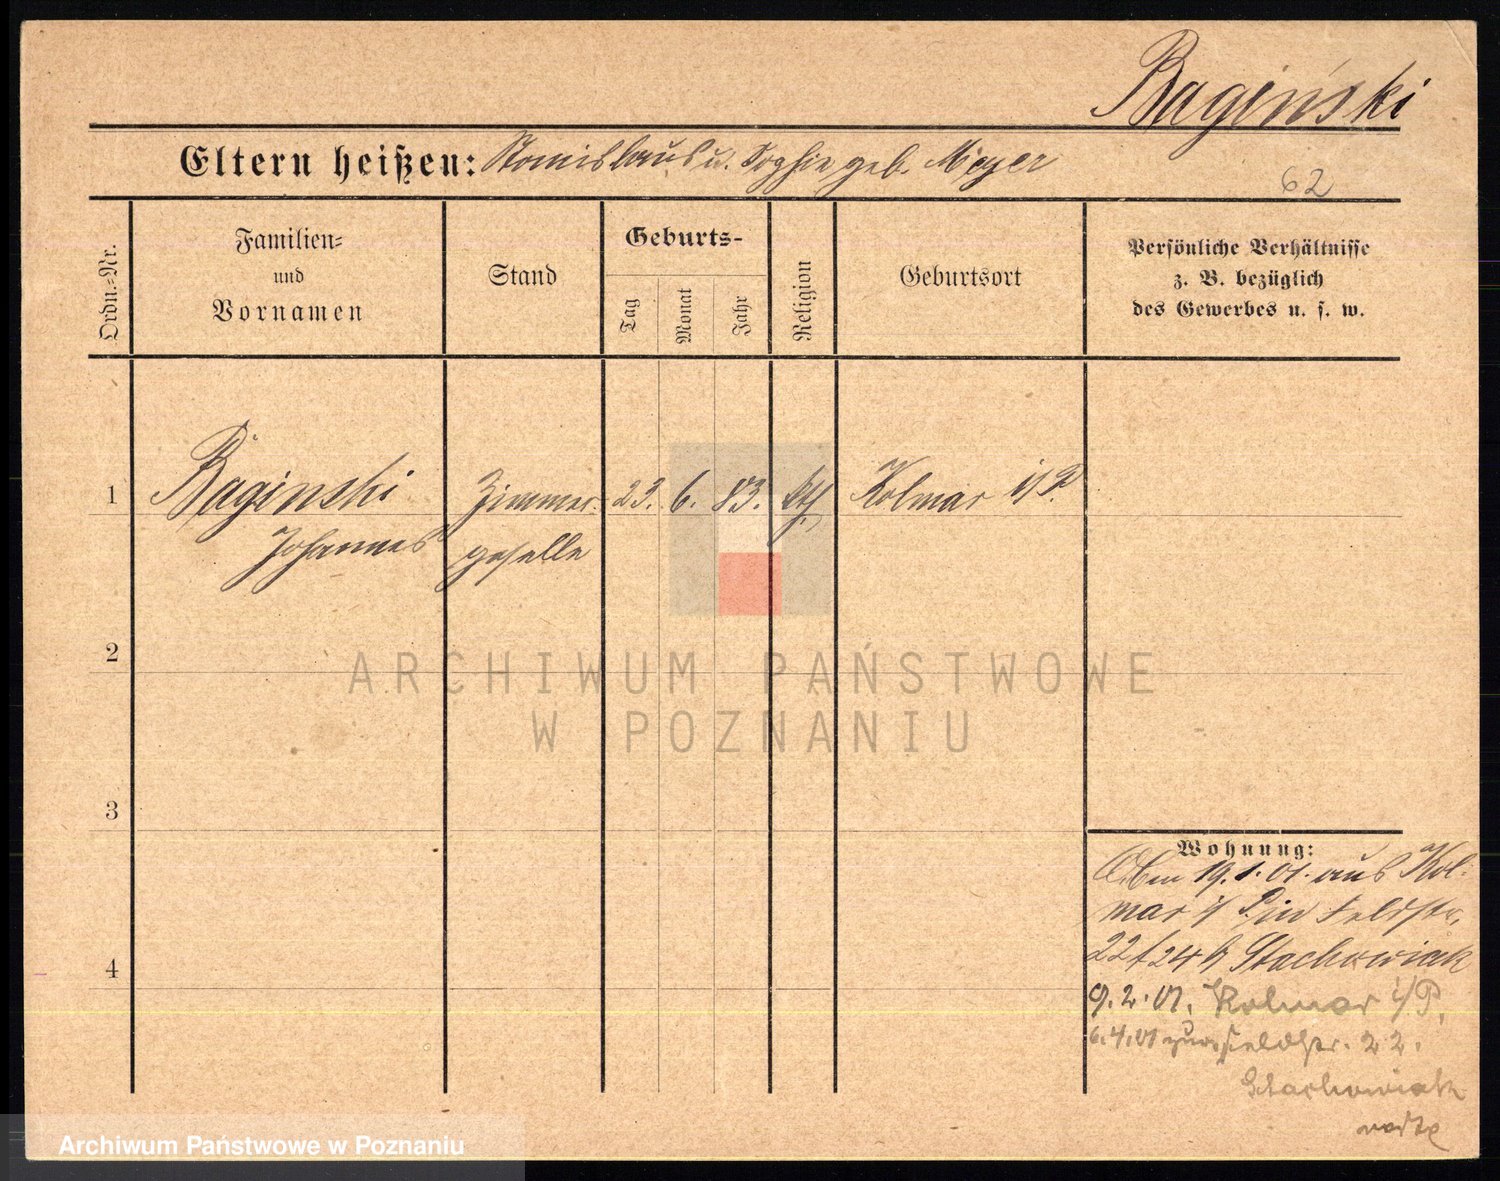 Bagiński
Eltern heißen: Stanislaus u. Sophie geb. Meyer
62
Ordn.-Nr.
Familien-
und
Vornamen
Stand
Geburts-
Tag
Monat
Jahr
Religion
Geburtsort
Persönliche Verhältnisse
z. B. bezüglich
des Gewerbes u. s. w.
1
Baginski
Johannes
Zimmer-
geselle
23.
6.
83.
kth.
Kolmar i/P.
2
ARCHIWUM PAŃSTWOWE
W POZNANIU
3
4
Wohnung:
19.1.01. aus Kol-
mar i/P. in Feldstr.
22/24 b Stachowiak
9.2.01. Kolmar i/P.
6.4.01 zur. Feldstr. 22.
Stachowiak
Archiwum Państwowe w Poznaniu